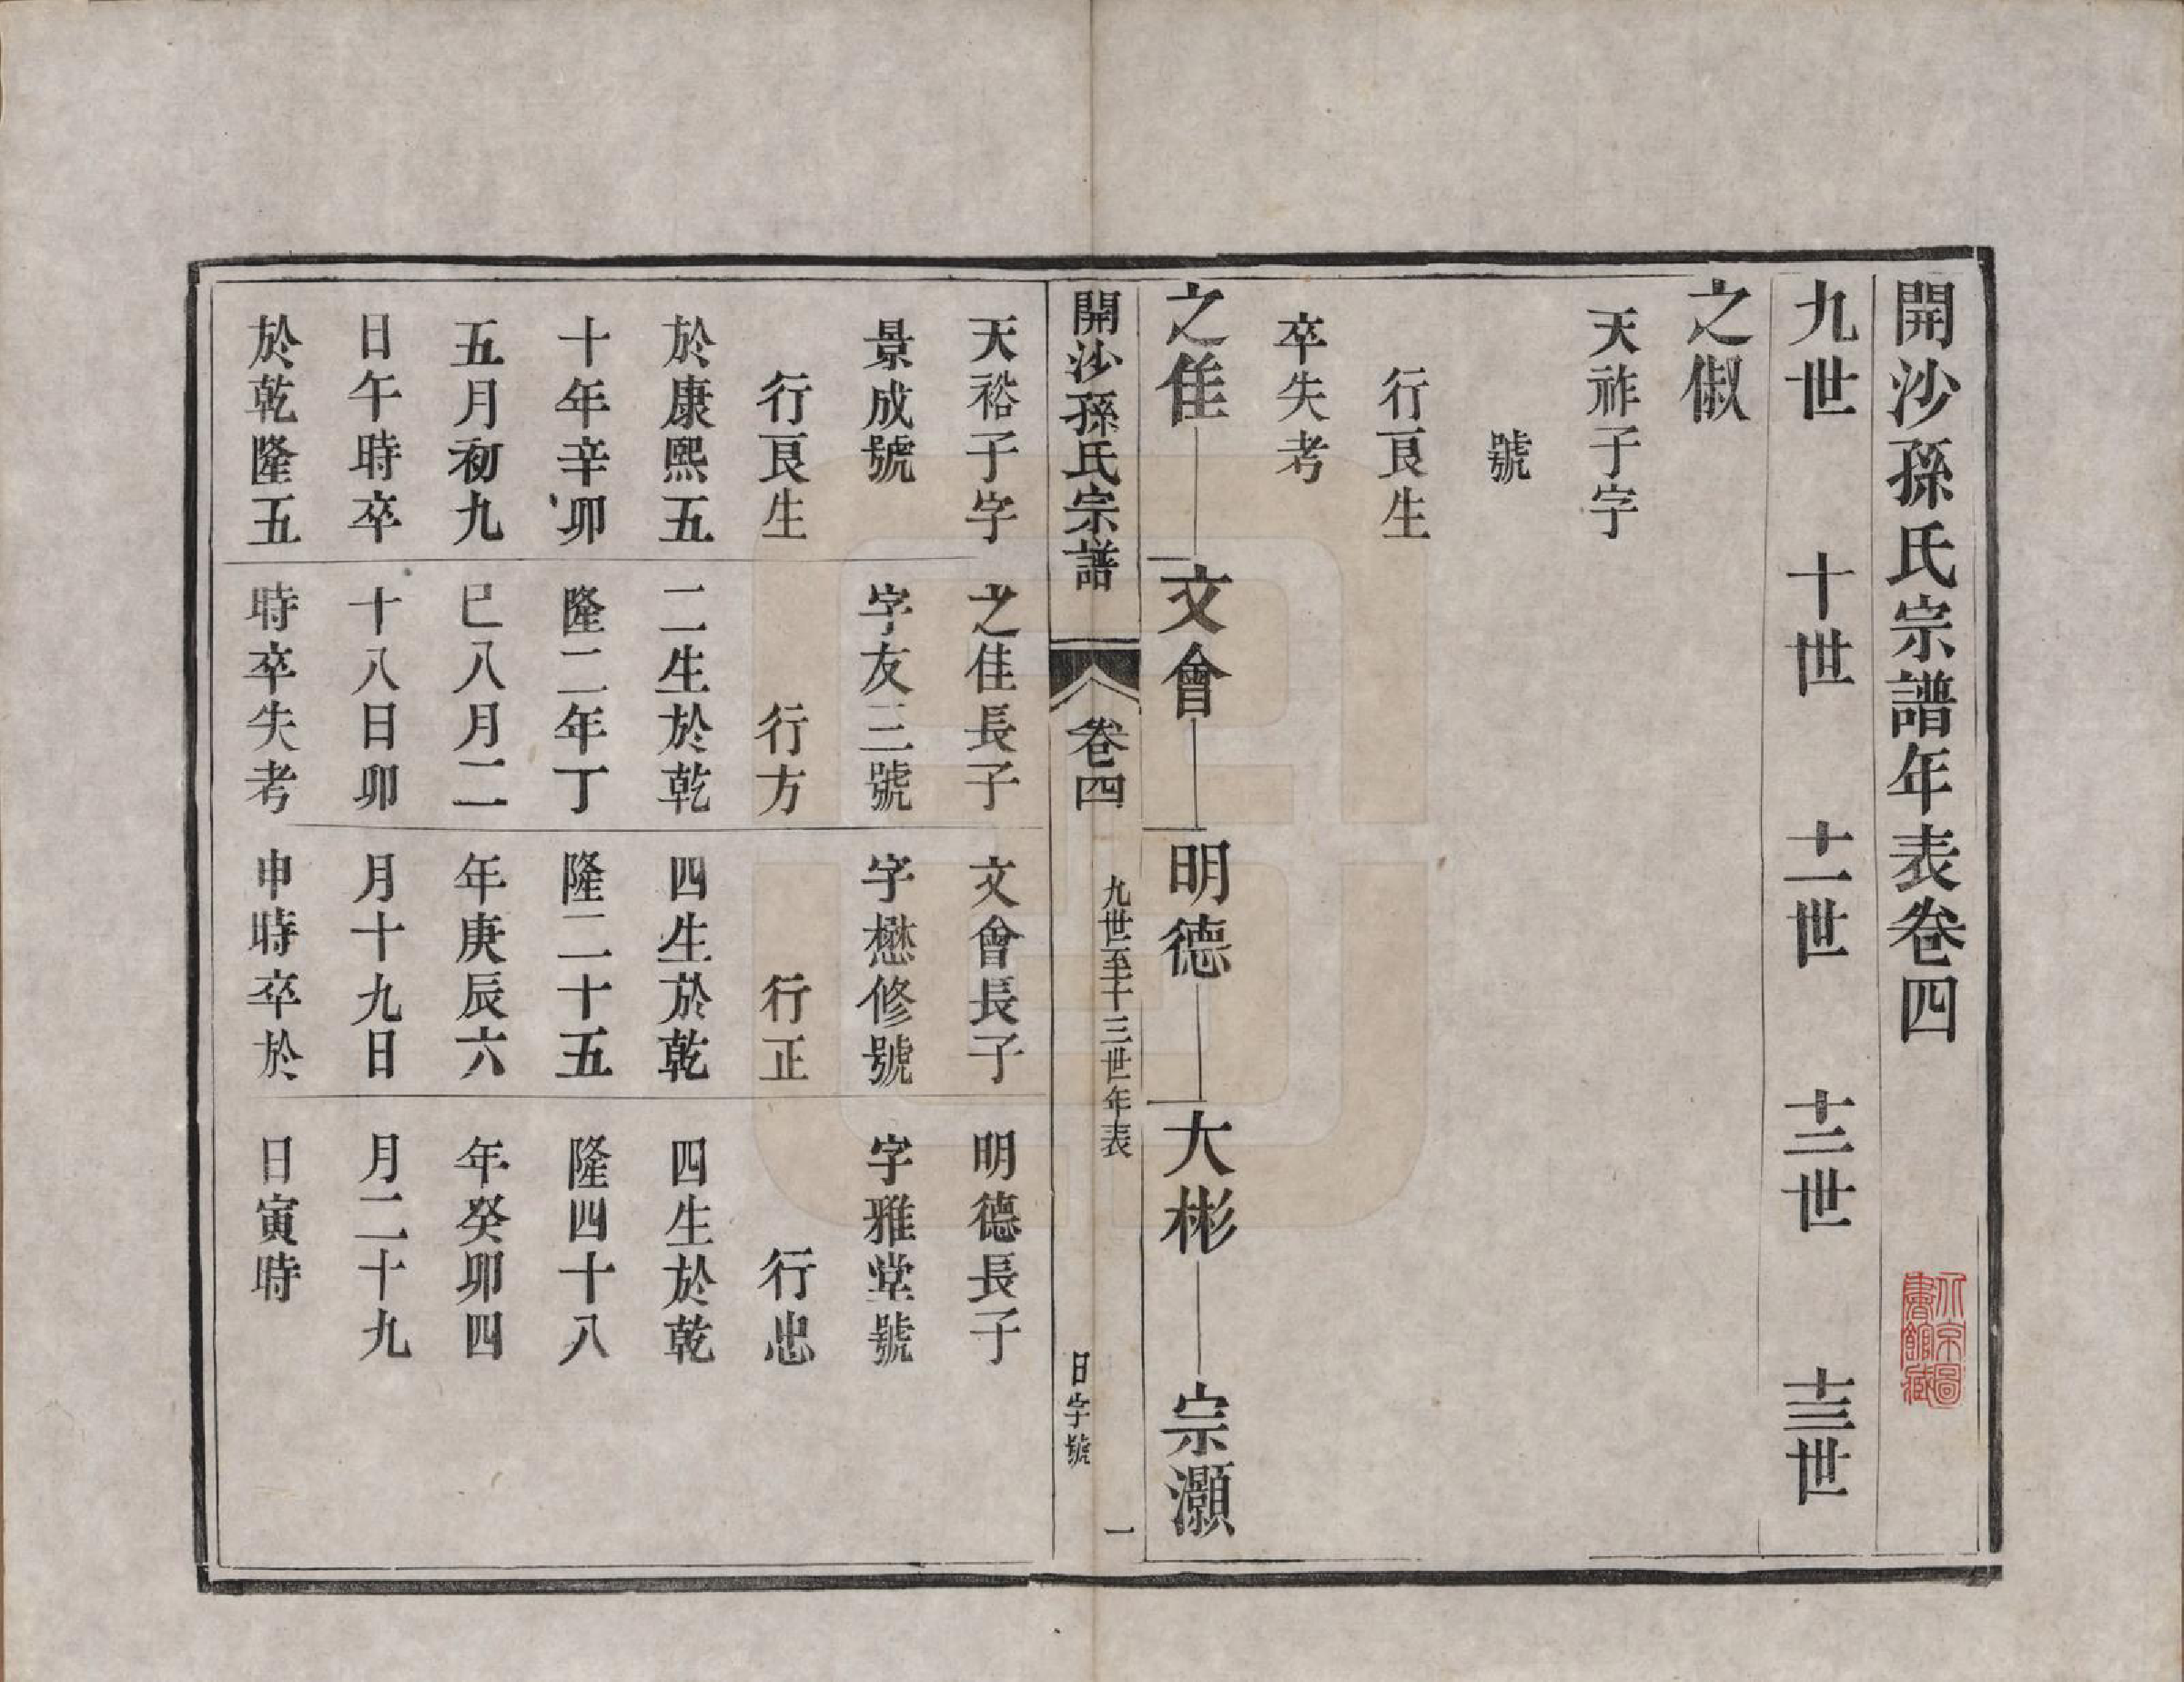 開沙孫氏宗譜年表卷四
九世 十世 十一世 十二世 十三世
之俶
天祚子字
號
行艮生
卒失考
之佳 文會 明德 大彬 宗灝
開沙孫氏宗譜 卷四 九世至十三世年表 日字號 一
天裕子字
景成號
行艮生
於康熙五
十年辛卯
五月初九
日午時卒
於乾隆五
之佳長子
字友三號
行方
二生於乾
隆二年丁
巳八月二
十八日卯
時卒失考
文會長子
字懋修號
行正
四生於乾
隆二十五
年庚辰六
月十九日
申時卒於
明德長子
字雅堂號
行忠
四生於乾
隆四十八
年癸卯四
月二十九
日寅時
北京圖
書館藏